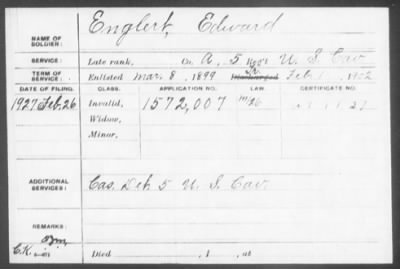 NAME OF SOLDIER: Englert, Edward
SERVICE: Late rank, Co. A, 5 Reg't U. S. Cav
TERM OF SERVICE: Enlisted Mar. 8, 1899 Discharged Feb. 1902
DATE OF FILING. CLASS. APPLICATION NO. LAW. CERTIFICATE NO.
1927 Feb. 26 Invalid, 1572,007
Widow,
Minor,
ADDITIONAL SERVICES: Cas. Det. 5 U. S. Cav
REMARKS:
C.K.
Died , 1 , at